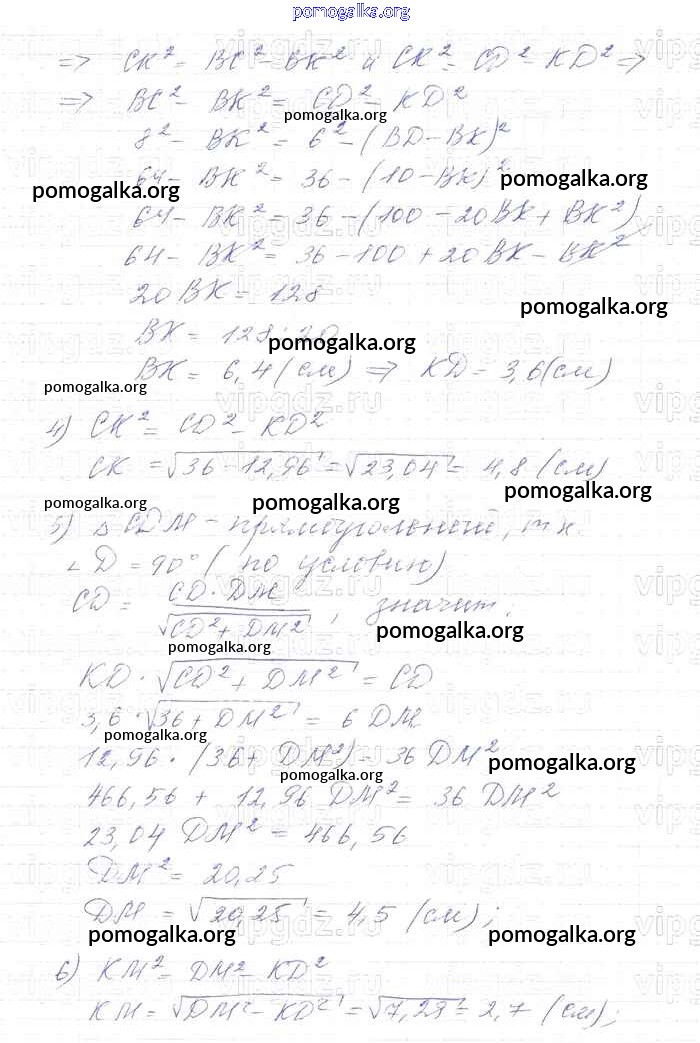 pomogalka.org
=> CK² = BC² - BK² и CK² = CD² - KD² =>
=> BC² - BK² = CD² - KD²
pomogalka.org
8² - BK² = 6² - (BD - BK)²
64 - BK² = 36 - (10 - BK)²
pomogalka.org
pomogalka.org
64 - BK² = 36 - (100 - 20BK + BK²)
64 - BK² = 36 - 100 + 20BK - BK²
20BK = 128
pomogalka.org
BK = 128 : 20
pomogalka.org
BK = 6,4 (см) => KD = 3,6 (см)
pomogalka.org
4) CK² = CD² - KD²
CK = √36 - 12,96 = √23,04 = 4,8 (см)
pomogalka.org
pomogalka.org
pomogalka.org
5) △CDM - прямоугольный, т.к.
∠D = 90° (по условию)
CD = CD · DM / √CD² + DM² , значит,
pomogalka.org
pomogalka.org
KD · √CD² + DM² = CD
3,6 · √36 + DM² = 6 DM
pomogalka.org
12,96 · (36 + DM²) = 36 DM²
pomogalka.org
pomogalka.org
466,56 + 12,96 DM² = 36 DM²
23,04 DM² = 466,56
DM² = 20,25
DM = √20,25 = 4,5 (см);
pomogalka.org
pomogalka.org
6) KM² = DM² - KD²
KM = √DM² - KD² = √7,29 = 2,7 (см);
vipgdz.ru